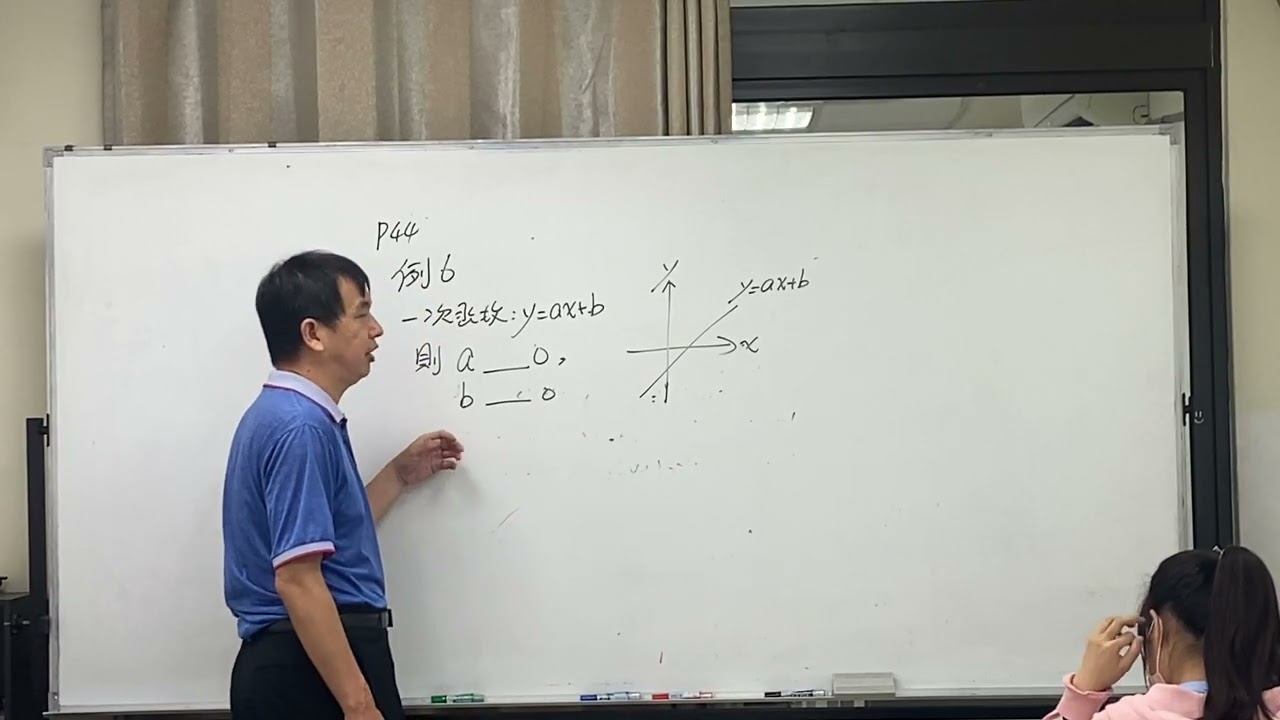 P44
例6
一次函数:y=ax+b
則 a __ 0,
b __ 0
y
y=ax+b
x